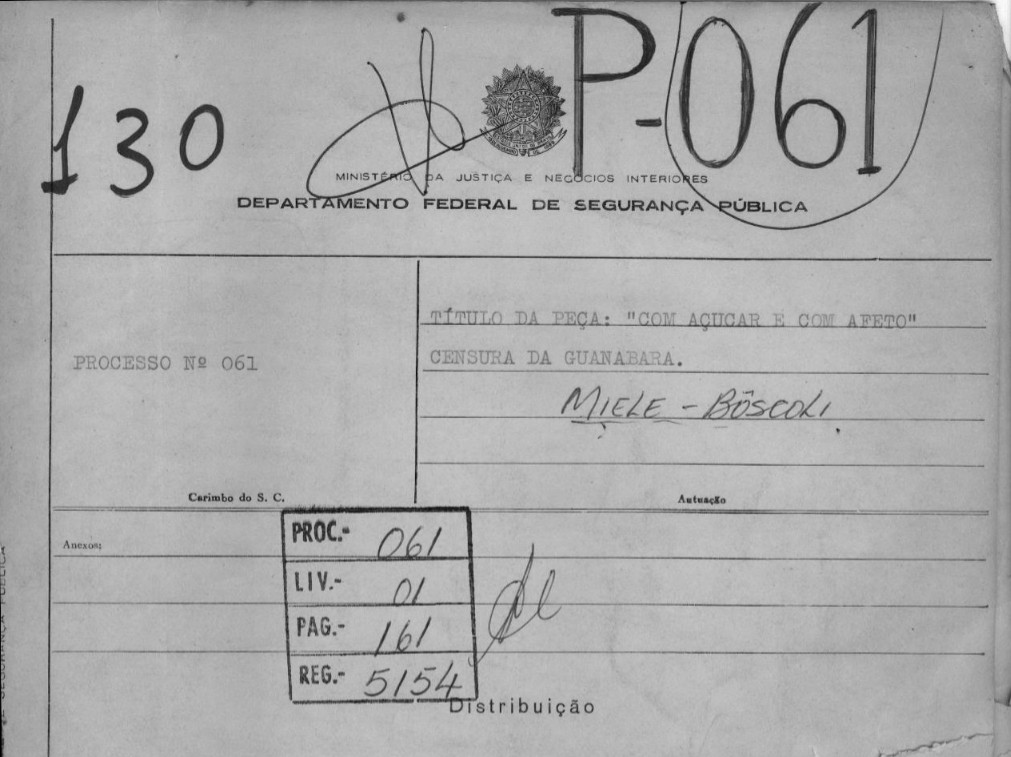 130
P-061
MINISTÉRIO DA JUSTIÇA E NEGÓCIOS INTERIORES
DEPARTAMENTO FEDERAL DE SEGURANÇA PÚBLICA
PROCESSO Nº 061
TÍTULO DA PEÇA: "COM AÇUCAR E COM AFETO"
CENSURA DA GUANABARA.
MIELE - BÔSCOLI
Carimbo do S. C.
Autuação
Anexos:
PROC.- 061
LIV.- 01
PAG.- 161
REG.- 5154
Distribuição